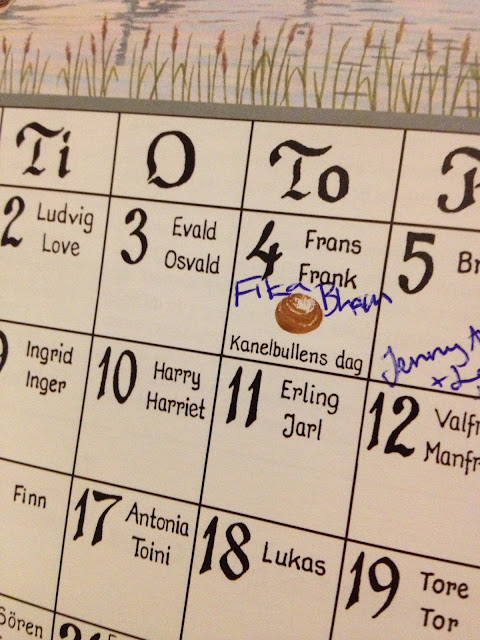 Ti O To F
2 Ludvig Love
3 Evald Osvald
4 Frans Frank
Fika Bham
Kanelbullens dag
5 Br
Jenny
9 Ingrid Inger
10 Harry Harriet
11 Erling Jarl
12 Valfr Manfr
Finn
17 Antonia Toini
18 Lukas
19 Tore Tor
Sören